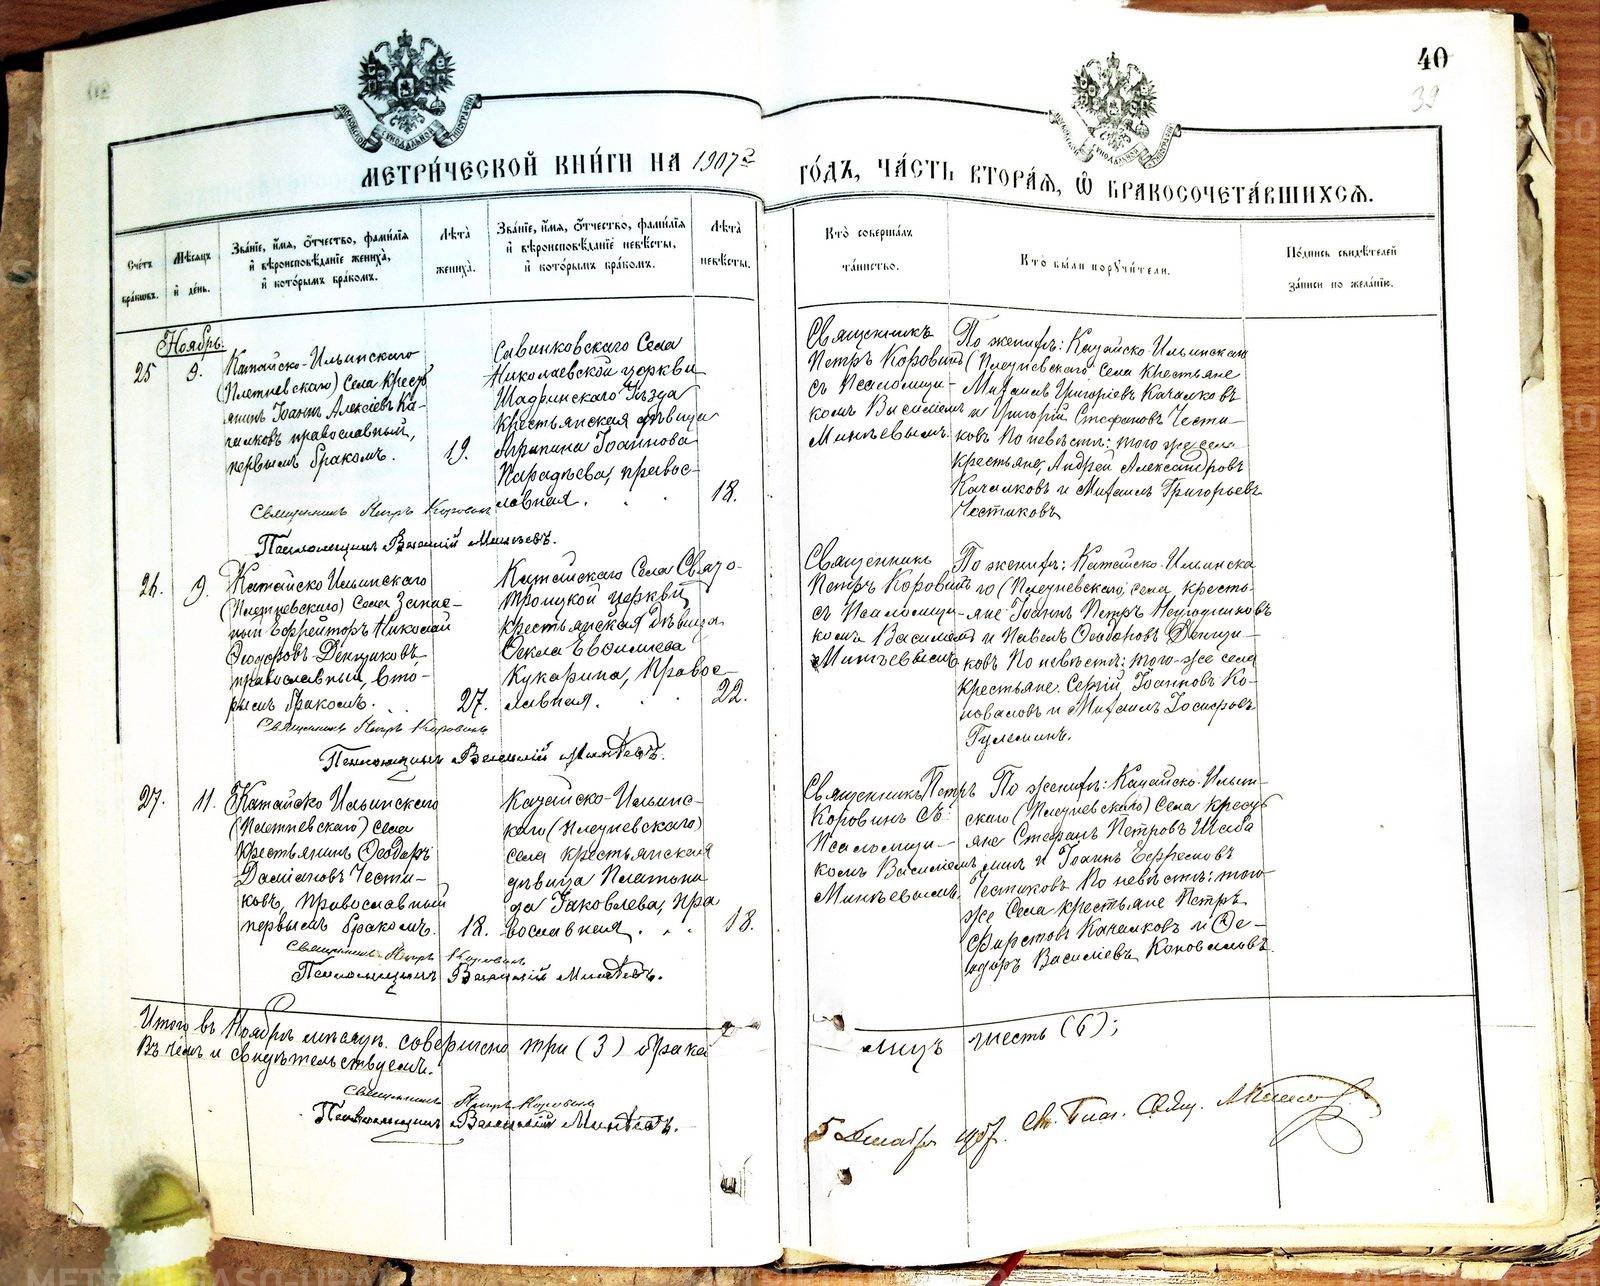 40
39
МЕТРИ́ЧЕСКОЙ КНИ́ГИ НА 1907 й
ГО́ДЪ, ЧА́СТЬ ВТОРА́Ѧ, Ѿ БРАКОСОЧЕТА́ВШИХСѦ.
Счётъ бра́ковъ.
Мѣ́сяцъ и де́нь.
Зва́нїе, и́мѧ, ѻ́тчество, фами́лїѧ
и вѣроисповѣ́данїе жениха̀,
и кото́рымъ бра́комъ.
Лѣта̀
жениха̀.
Зва́нїе, и́мѧ, ѻ́тчество, фами́лїѧ
и вѣроисповѣ́данїе невѣ́сты,
и кото́рымъ бра́комъ.
Лѣта̀
невѣ́сты.
Кто̀ соверша́лъ
та́инство.
Кто̀ бы́ли порꙋчи́тели.
По́дпись свидѣ́телей
за́писи по жела́нїю.
Ноябрь.
25
9.
Катайско-Ильинскаго
(Плетневскаго) Села Кресть
янинъ Іоаннъ Алексіевъ Ка-
чалковъ православный,
первымъ бракомъ.
19.
Савинковскаго Села
Николаевской церкви
Шадринскаго Уѣзда
крестьянская дѣвица
Агрипина Іоаннова
Парадѣева, правос-
лавная.
18.
Священникъ
Петръ Коровинъ
съ Псаломщи-
комъ Василіемъ
Минѣевымъ.
По женихѣ: Катайско-Ильинскаго
(Плетневскаго Села крестьяне
Михаилъ Григоріевъ Качалковъ
и Григорій Стефановъ Чести-
ковъ По невѣстѣ: того же села
крестьяне, Андрей Александровъ
Качалковъ и Михаилъ Григорьевъ
Честиковъ
Священникъ Петръ Коровинъ
Псаломщикъ Василій Минѣевъ.
26.
9.
Катайско Ильинскаго
(Плетневскаго) Села Запас-
ный Ефрейторъ Николай
Ѳеодоровъ Денщиковъ,
православный, вто-
рымъ бракомъ.
27.
Катайскаго Села Свято-
троицкой церкви
крестьянская дѣвица
Ѳекла Евфиміева
Кукарина, Правос-
лавная.
22.
Священникъ
Петръ Коровинъ
съ Псаломщи-
комъ Василіемъ
Минѣевымъ
По женихѣ: Катайско-Ильинска
го (Плетневскаго) села кресть-
яне Іоаннъ Петръ
и Павелъ Ѳеодоровъ Денщи-
ковъ По невѣстѣ: того-же села
крестьяне Сергій Іоанновъ Ко-
новаловъ и Михаилъ Іосифовъ
Гулеминъ.
Священникъ Петръ Коровинъ
Псаломщикъ Василій Минѣевъ.
27.
11.
Катайско Ильинскаго
(Плетневскаго) села
крестьянинъ Ѳеодоръ
Даміановъ Чести-
ковъ, Православный
первымъ бракомъ.
18.
Катайско-Ильинс-
каго (Плетневскаго)
села крестьянская
дѣвица Платони-
да Іаковлева, Пра
вославная.
18.
Священникъ Петръ
Коровинъ Съ
Псаломщи-
комъ Василіемъ
Минѣевымъ.
По женихѣ: Катайско-Ильин-
скаго (Плетневскаго) Села кресть
яне Стефанъ Петровъ Шаба
минъ и Іоаннъ Ефремовъ
Честиковъ По невѣстѣ: того-
же Села крестьяне Петръ
Фирстовъ Качалковъ и Ѳе-
одоръ Василіевъ Коноваловъ
Священникъ Петръ Коровинъ
Псаломщикъ Василій Минѣевъ.
Итого въ Ноябрѣ мѣсяцѣ совершено три (3) брака
лицъ шесть (6);
Въ чемъ и свидѣтельствуемъ.
Священникъ Петръ Коровинъ
Псаломщикъ Василій Минѣевъ.
5 Декабря 1907. Св.